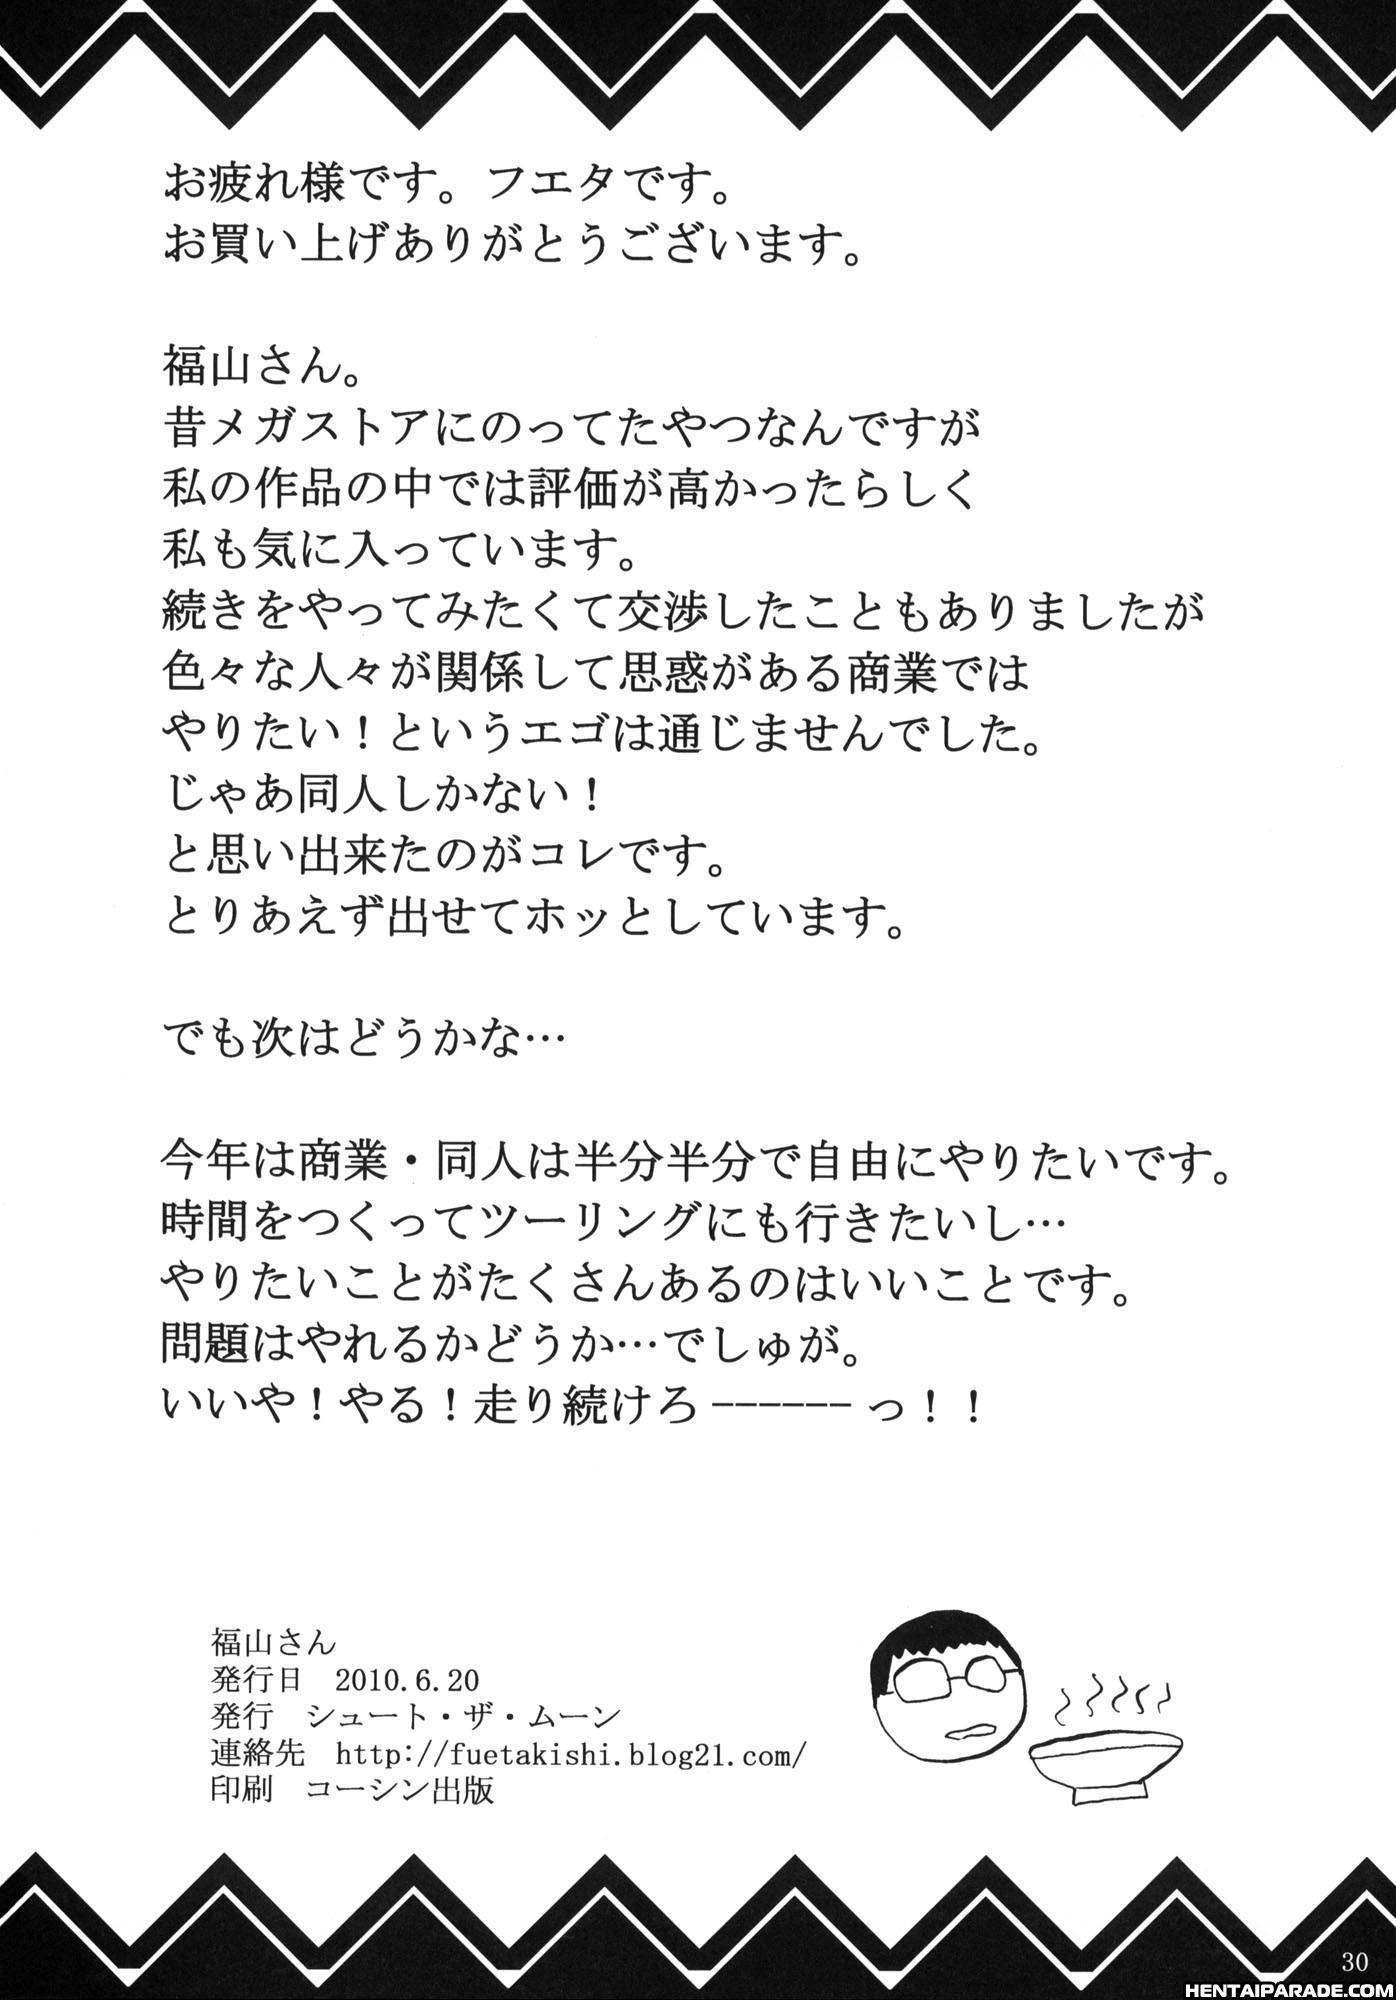 お疲れ様です。フエタです。
お買い上げありがとうございます。
福山さん。
昔メガストアにのってたやつなんですが
私の作品の中では評価が高かったらしく
私も気に入っています。
続きをやってみたくて交渉したこともありましたが
色々な人々が関係して思惑がある商業では
やりたい！というエゴは通じませんでした。
じゃあ同人しかない！
と思い出来たのがコレです。
とりあえず出せてホッとしています。
でも次はどうかな…
今年は商業・同人は半分半分で自由にやりたいです。
時間をつくってツーリングにも行きたいし…
やりたいことがたくさんあるのはいいことです。
問題はやれるかどうか…でしゅが。
いいや！やる！走り続けろ ------ っ！！
福山さん
発行日　2010.6.20
発行　シュート・ザ・ムーン
連絡先　http://fuetakishi.blog21.com/
印刷　コーシン出版
30
HENTAIPARADE.COM